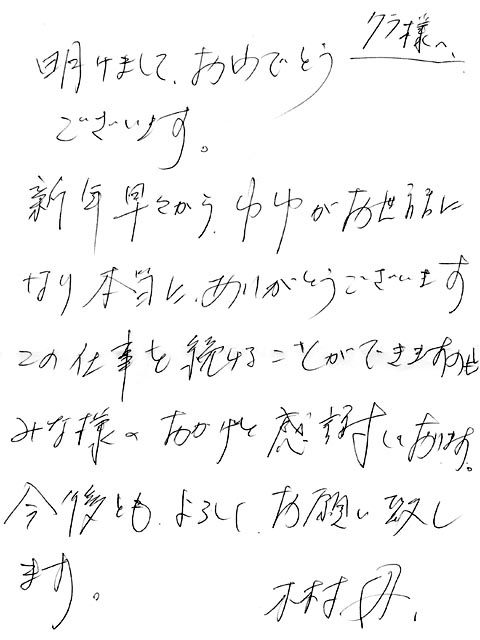 クラ様へ
明けまして、おめでとう
ございます。
新年早々から、ゆゆがお世話に
なり本当に、ありがとうございます
この仕事を続けることができますのも
みな様のおかげと感謝しております。
今後とも、よろしく、お願い致し
ます。
木村